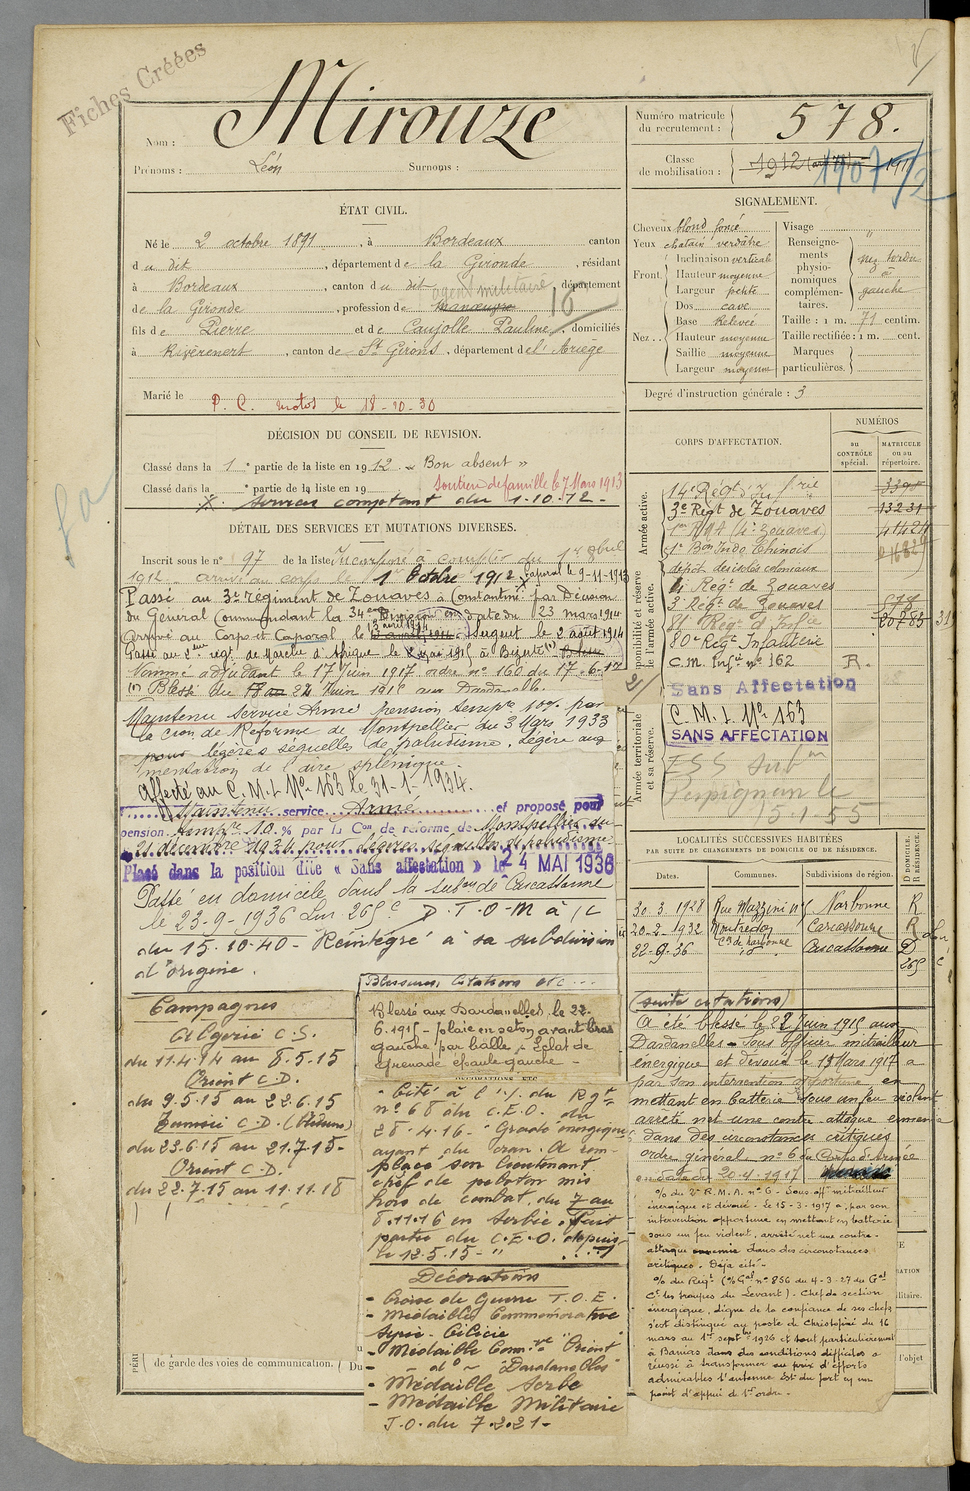 Fiches Créées
Nom : Mirouze
Prénoms : Léon Surnoms :
Numéro matricule du recrutement : 578.
Classe de mobilisation : 1912 1907/2
ÉTAT CIVIL.
Né le 2 octobre 1891, à Bordeaux canton
du dit, département de la Gironde, résidant
à Bordeaux, canton du dit département
agent militaire
de la Gironde, profession de manœuvre 16
fils de Pierre et de Caujolle Pauline, domiciliés
à Rivèrenert, canton de St Girons, département de l'Ariège
Marié le
P. C. motos le 18-10-30
SIGNALEMENT.
Cheveux blond foncé
Yeux chatain verdâtre
Front. Inclinaison vertical
Hauteur moyenne
Largeur petite
Nez.. Dos cave
Base Relevée
Hauteur moyenne
Saillie moyenne
Largeur moyenne
Visage "
Renseignements physionomiques complémentaires. nez tordu à gauche
Taille : 1 m. 71 centim.
Taille rectifiée : 1 m. cent.
Marques particulières.
Degré d'instruction générale : 3
DÉCISION DU CONSEIL DE REVISION.
Classé dans la 1e partie de la liste en 1912. « Bon absent »
Classé dans la e partie de la liste en 19 Soutien de famille le 7 Mars 1913
X Services comptant du 1-10-12-
DÉTAIL DES SERVICES ET MUTATIONS DIVERSES.
Inscrit sous le n° 97 de la liste Incorporé à compter du
1912. arrivé au corps le 1er Octobre 1912 X Caporal le 9-11-1913
Passé au 3e régiment de Zouaves à Constantine par Décision
du Général Commandant la 34eme Division en date du 23 mars 1914
13 avril 1914
Arrivé au Corps et Caporal, le Sergent le 2 août 1914
Passé au 2eme régt de Marche d'Afrique le 8 mai 1915 à Bizerte (1) Blessé
Nommé adjudant le 17 Juin 1917 ordre n° 160 du 17-6-17
(1) Blessé du 22 Juin 1915 aux Dardanelle.
Maintenu Service Armé pension tempre 10% par
la Cion de Réforme de Montpellier du 3 Mars 1933
pour légères séquelles de paludisme. Légère aug
mentation de l'aire splénique.
Affecté au C.M.I. N° 163 le 31-1-1934.
Maintenu service Armé et proposé pour
pension tempre 10 % par la Con de réforme de Montpellier du
21 décembre 1934 pour légères séquelles de paludisme
Placé dans la position dite « Sans affectation » le 24 MAI 1936
Passé en domicile dans la Subon de Carcassonne
le 23-9-1936 Lur 265 C D.T.O-M à /C
du 15-10-40- Réintégré à sa subdivision
d'origine.
CORPS D'AFFECTATION.
NUMÉROS
au CONTRÔLE spécial.
MATRICULE ou au répertoire.
Armée active.
14e Régt d'Infrie 3391
3e Régt de Zouaves 13231
1er RMA (4e Zouaves) 41424
1er Bon Indo Chinois
dépôt des isolés coloniaux
Disponibilité et réserve de l'armée active.
4 Régt de Zouaves
3e Régt de Zouaves 578
81e Régt d'Infie
80e Régt Infanterie
C.M. Infie n° 162 R.
Sans Affectation
Armée territoriale et sa réserve.
C.M.I. N° 163
SANS AFFECTATION
ESS Subon
Perpignan le
15-1-55
LOCALITÉS SUCCESSIVES HABITÉES
PAR SUITE DE CHANGEMENTS DE DOMICILE OU DE RÉSIDENCE.
Dates. Communes. Subdivisions de région. D DOMICILE. R RÉSIDENCE.
30.3.1928 Rue Mazzini n° 5 Narbonne R
20-2-1932 Montredon Carcassonne R
Con de Narbonne
22-9-36 id. Carcassonne D
265 C
Campagnes
Algérie C.S.
du 11.4.14 au 8.5.15
Orient C.D.
du 9.5.15 au 22.6.15
Tunisie C.D. (blessure)
du 23.6.15 au 21.7.15-
Orient C.D.
du 22.7.15 au 11.11.18
Blessures, Citations etc...
Blessé aux Dardanelles le 22.
6.1915 - plaie en seton avant bras
gauche par balle, Eclat de
Grenade épaule gauche -
- Cité à l'o/. du Rgt
n° 68 du C.E.O. du
28.4.16- "Gradé énergique
ayant du cran. A rem-
placé son lieutenant
chef de peloton mis
hors de combat du 7 au
8.11.16 en Serbie. Fait
partie du C.E.O. depuis
le 12.5.15-"
Décorations
- Croix de Guerre T.O.E.
- Médaille Commémorative
Syrie - Cilicie
- Médaille Comve "Orient"
- d° - "Dardanelles"
- Médaille Serbe
- Médaille Militaire
J.O. du 7.2.21-
(suite citations)
A été blessé le 22 Juin 1915 aux
Dardanelles - Sous officier mitrailleur
énergique et dévoué le 15 Mars 1917 a
par son intervention opportune en
mettant en batterie sous un feu violent
arrêté net une contre-attaque ennemie
dans des circonstances critiques
ordre général n° 6 du Corps d'Armée
en date du 20-4-1917
o/o du 2e R.M.A. n° 6 - Sous offr mitrailleur
énergique et dévoué. Le 15-3-1917 a, par son
intervention opportune en mettant en batterie
sous un feu violent, arrêté net une contre-
attaque ennemie dans des circonstances
critiques. Déjà cité -
o/o du Régt (o/o Gal n° 856 du 4-3-27 du Gal
Ct les troupes du Levant) - Chef de section
énergique, digne de la confiance de ses chefs
s'est distingué au poste de Christofini du 16
mars au 1er septbre 1926 et tout particulièrement
à Banias dans des conditions difficiles a
réussi à transformer au prix d'efforts
admirables l'antenne Est du fort en un
point d'appui de 1er ordre -
de garde des voies de communication. Du